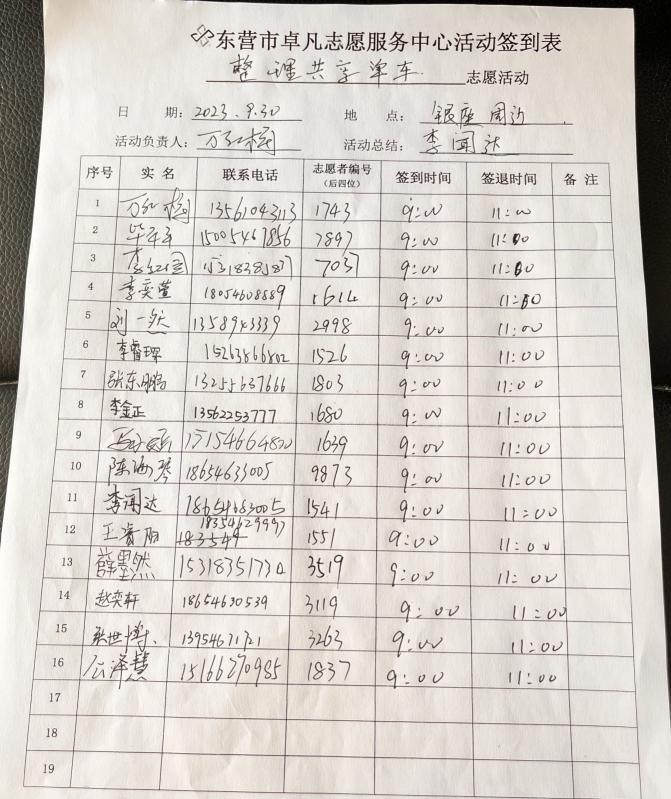 东营市卓凡志愿服务中心活动签到表
整理共享单车 志愿活动
日 期：2023.9.30 地 点：银座周边
活动负责人：万红梅 活动总结：李闻达
序号 实名 联系电话 志愿者编号（后四位） 签到时间 签退时间 备注
1 万红梅 13561043113 1743 9:00 11:00
2 15005467856 7897 9:00 11:00
3 7037 9:00 11:00
4 李奕萱 18054608889 1614 9:00 11:00
5 刘一然 2998 9:00 11:00
6 李睿琛 1526 9:00 11:00
7 张东鹏 13255637666 1803 9:00 11:00
8 李金正 13562253777 1680 9:00 11:00
9 1639 9:00 11:00
10 陈海琴 18654633005 9873 9:00 11:00
11 李闻达 18654683005 1541 9:00 11:00
12 18354629997 1551 9:00 11:00
13 薛墨然 15318351730 3519 9:00 11:00
14 赵奕轩 18654630539 3119 9:00 11:00
15 张世博 13954671721 3263 9:00 11:00
16 15166270985 1837 9:00 11:00
17
18
19